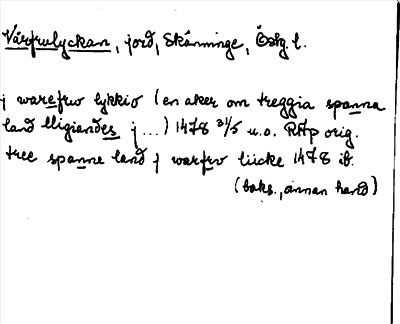 Vårfrulyckan, jord, Skänninge, Östg. l.
j warefrw lykkio (en aker om treggia spanna
land lligiandes j ...) 1478 31/5 u.o. RAp orig.
tree spanne land j warfrv lücke 1478 ib.
(baks., annan hand)